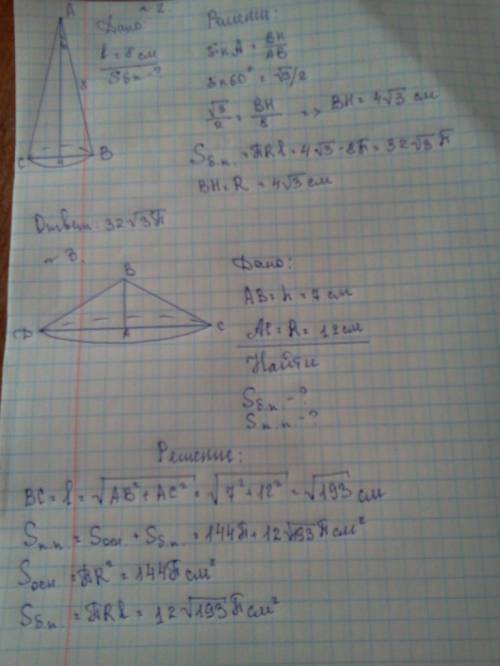 ~ 2.
A
8
C
H
B
Дано
l = 8 см
Sб.п. - ?
Решение:
sin A = BH/AB
sin 60° = √3/2
√3/2 = BH/8 => BH = 4√3 см
Sб.п. = πRl = 4√3 · 8π = 32√3 π
BH = R = 4√3 см
Ответ: 32√3 π
~ 3.
B
D
A
C
Дано:
AB = h = 7 см
AC = R = 12 см
Найти
Sб.п. - ?
Sп.п. - ?
Решение:
BC = l = √AB² + AC² = √7² + 12² = √193 см
Sп.п. = Sосн. + Sб.п. = 144π + 12√193 π см²
Sосн. = πR² = 144π см²
Sб.п. = πRl = 12√193 π см²